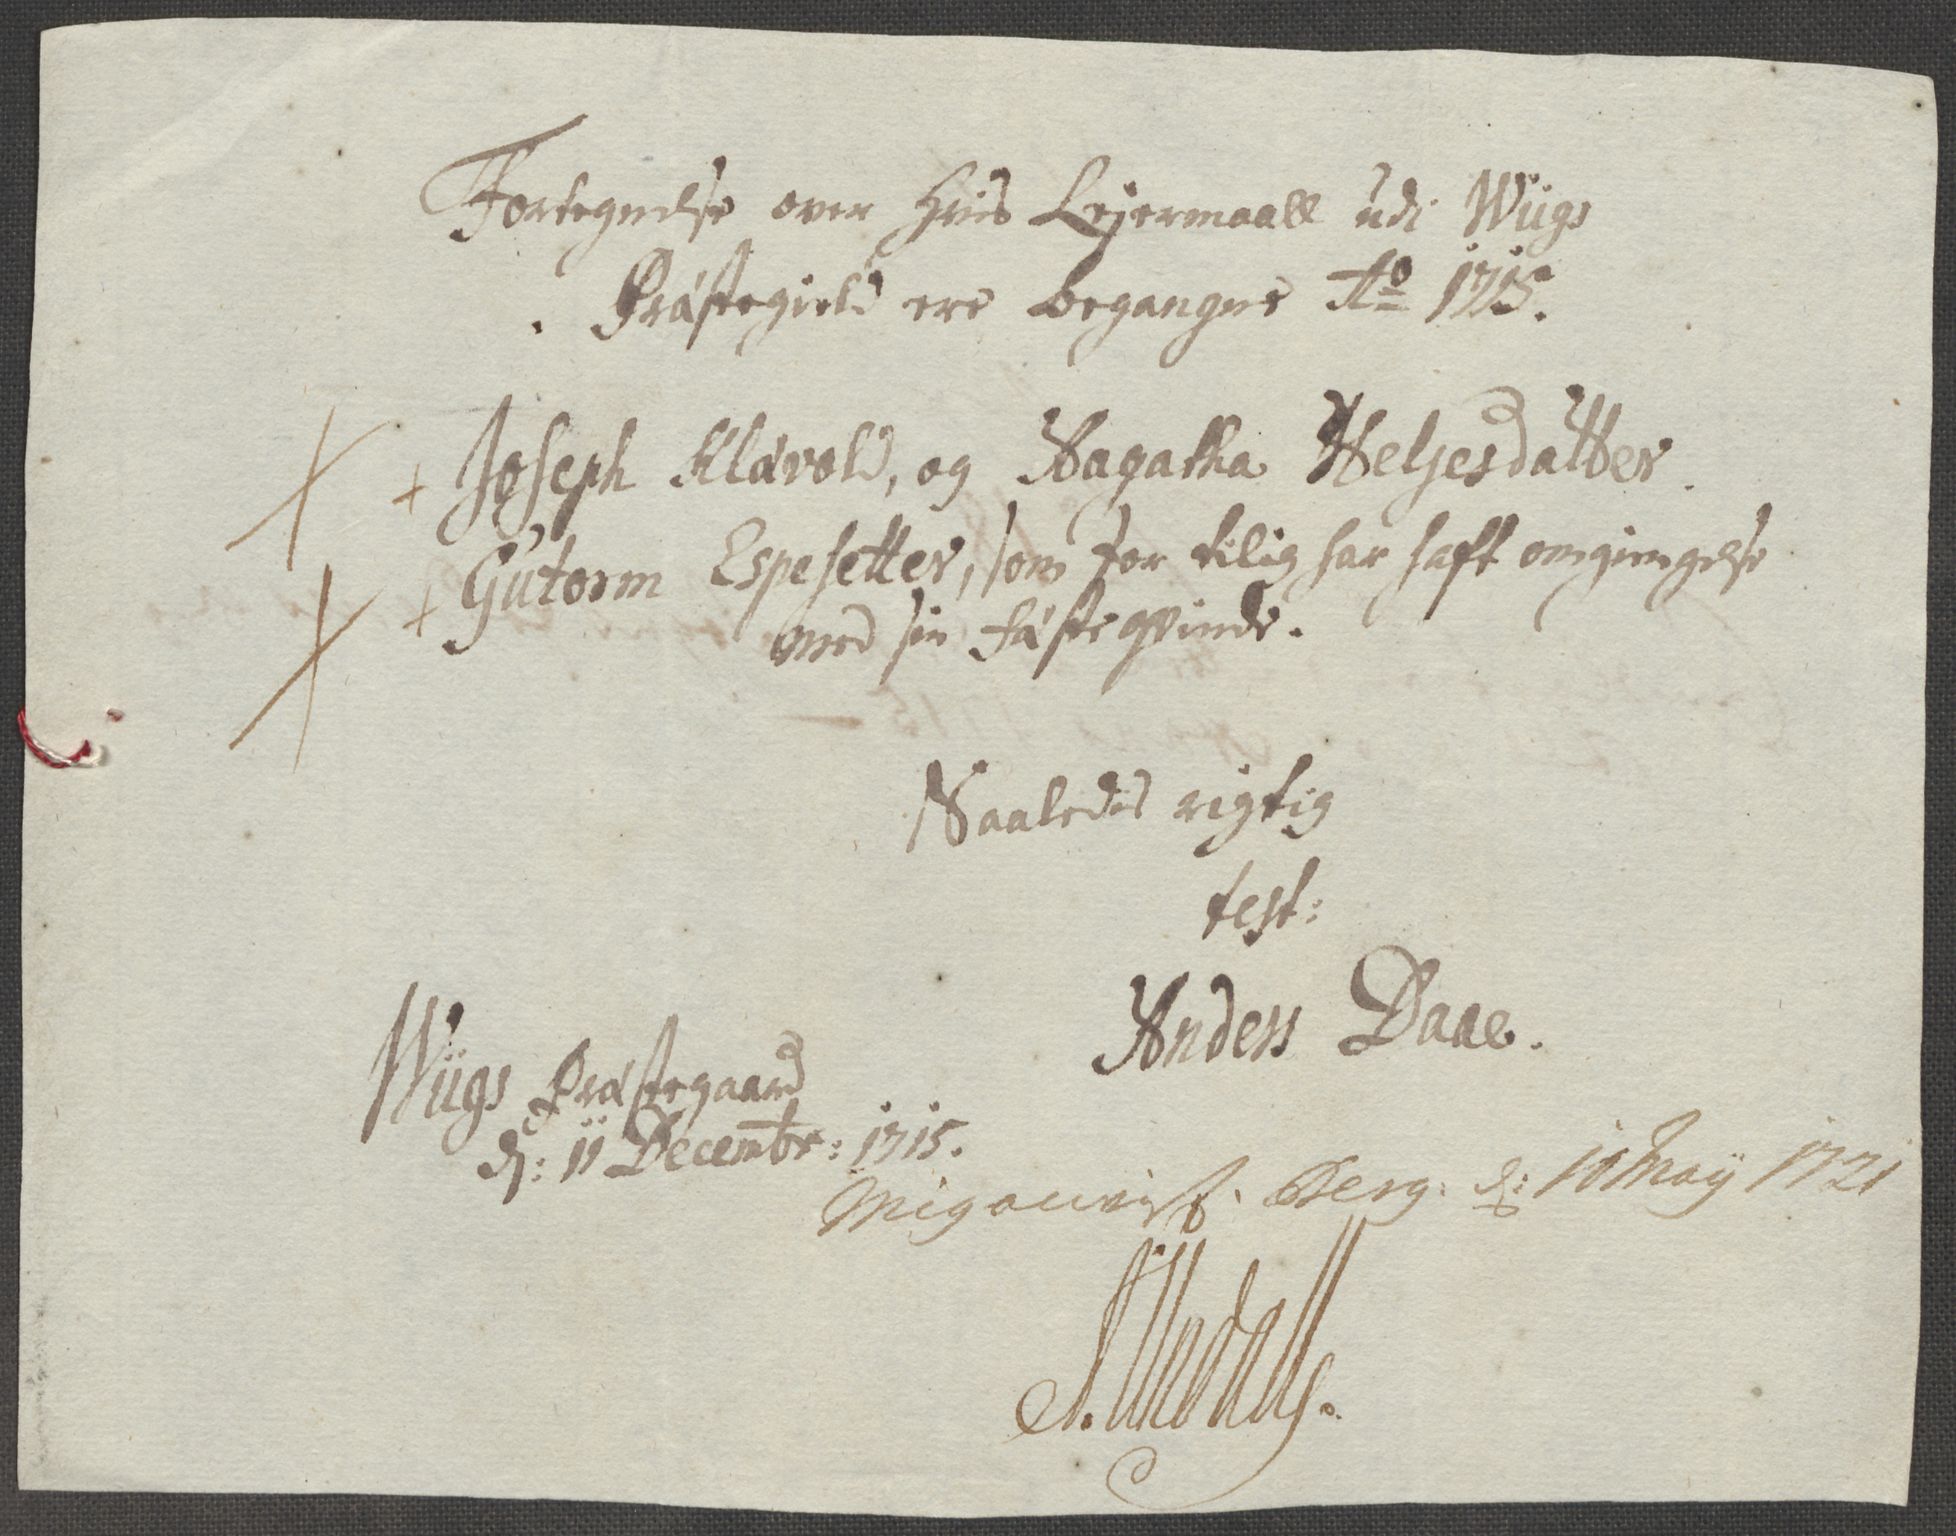 Fortegnelse over hvis Lejermaall udi Wiigs
Præstegield ere begangne Ao 1715.
Joseph Klævold, og Aagatha Heljesdatter.
Gutorm Espesetter, som for tilig har haft omgiengelse
med sin fæste qvinde.
Saaledes rigtig
test:
Anders Daae.
Wiigs Præstegaard
d: 11 Decembr: 1715.
Berg: d: 10 May 1721